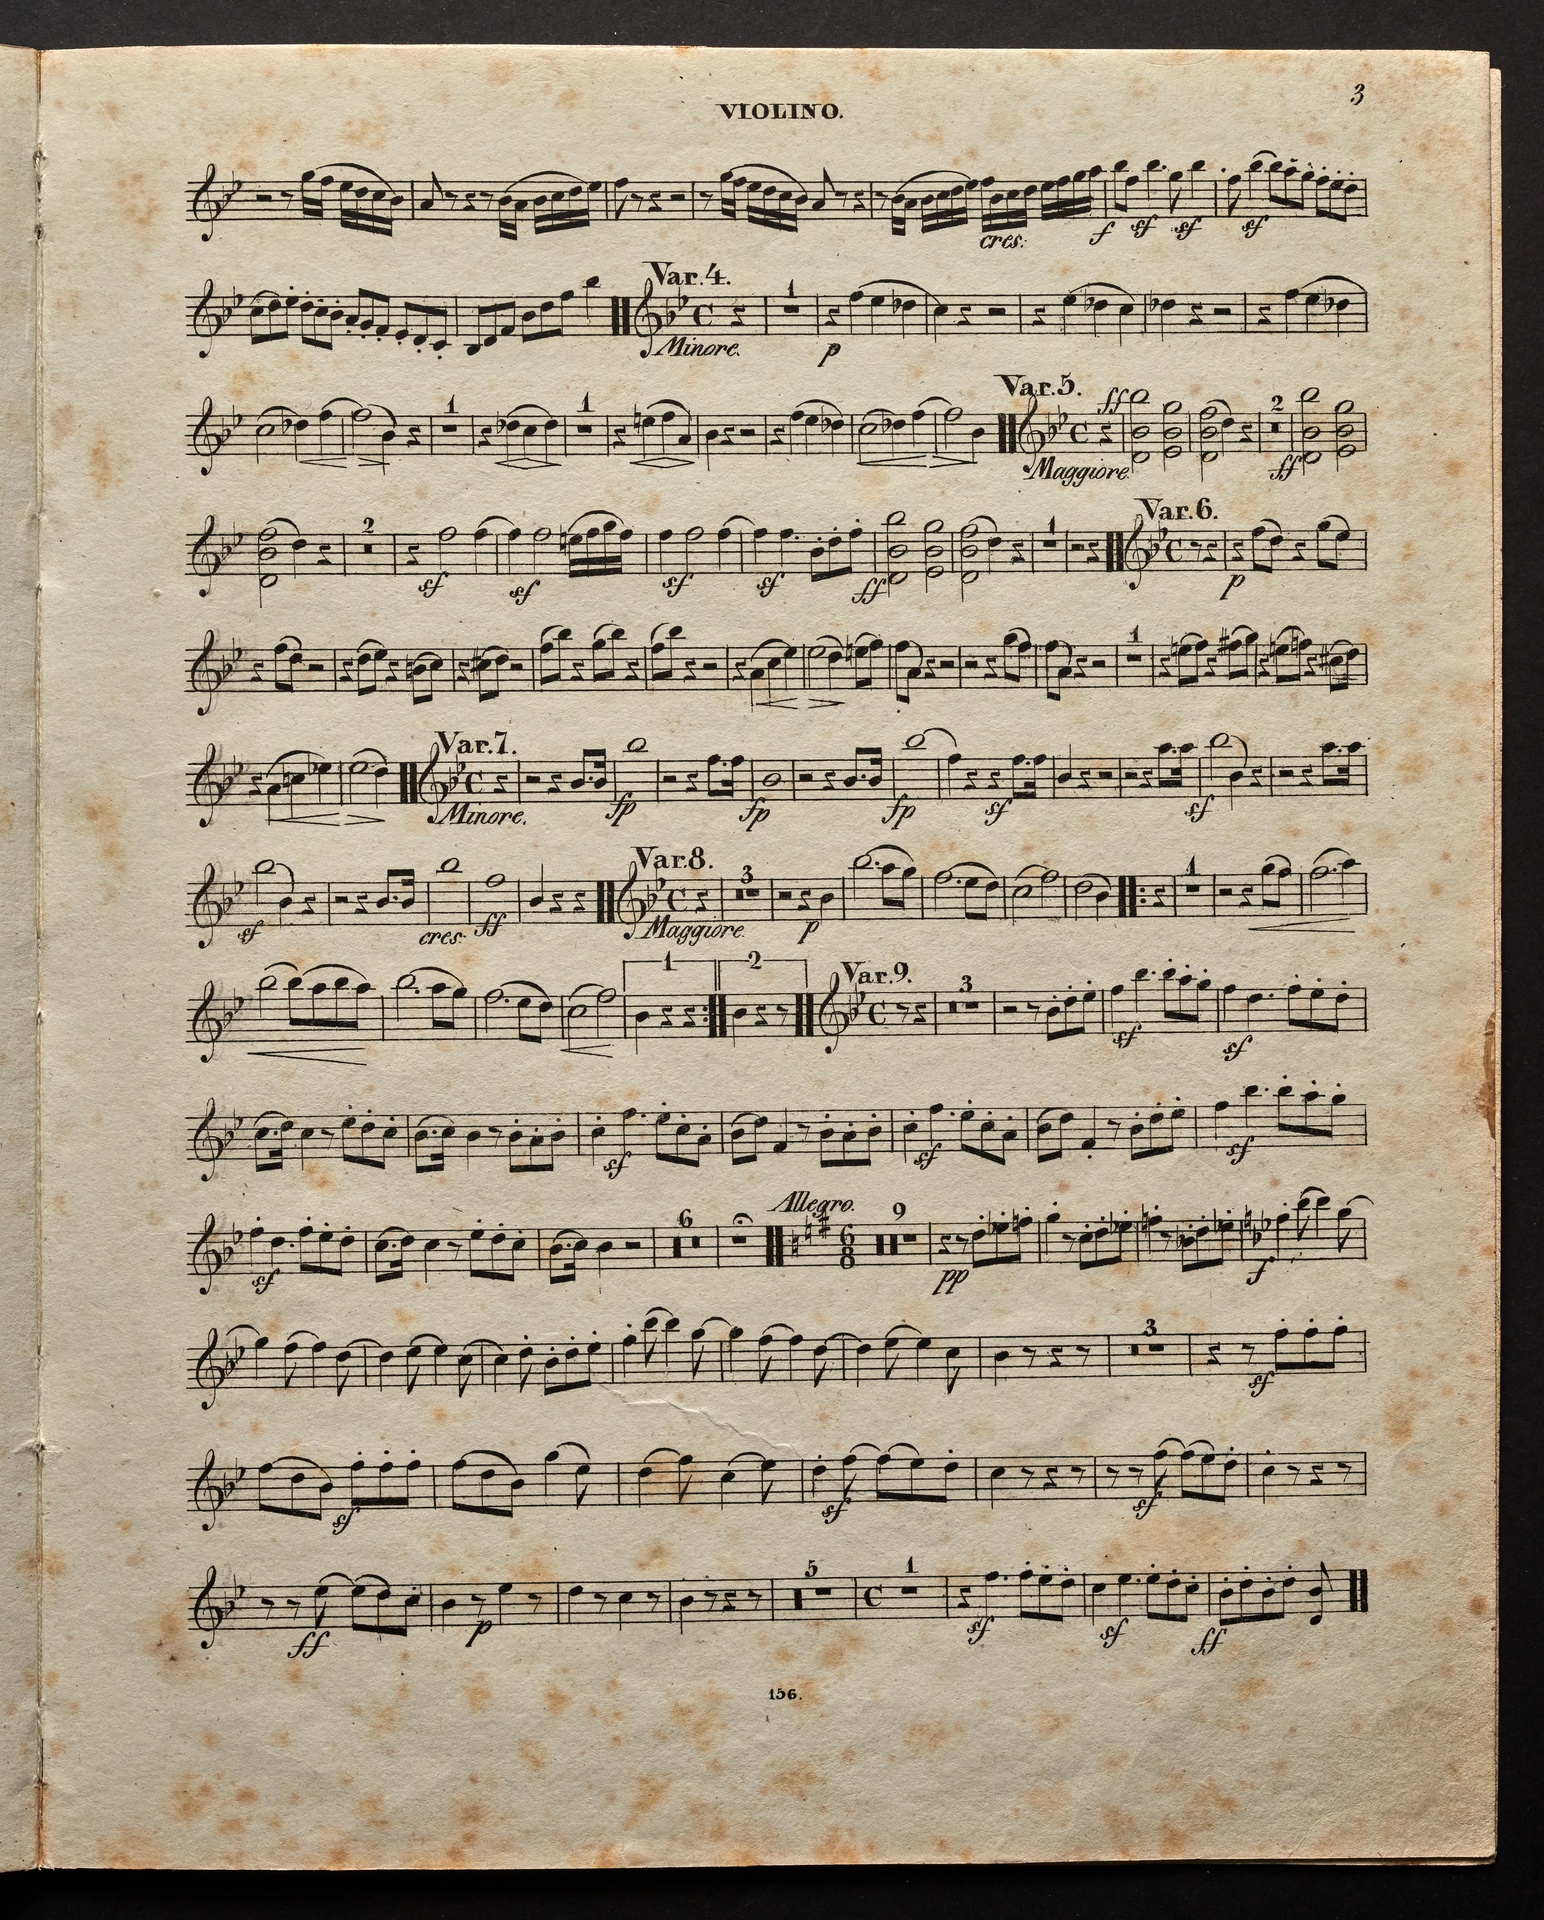 3
VIOLINO.
cres: f sf sf sf
Var.4.
1
Minore. p
Var.5.
1 1 ff 2
Maggiore. ff
Var.6.
2 1
sf sf sf sf ff p
1
Var.7.
Minore. fp fp fp sf sf
Var.8.
3 1
sf cres: ff Maggiore p
1 2 Var.9.
3
sf sf
sf sf sf
Allegro.
6 9 6 8
sf pp f
3
sf
sf sf sf
5 1
ff p sf sf ff
156.